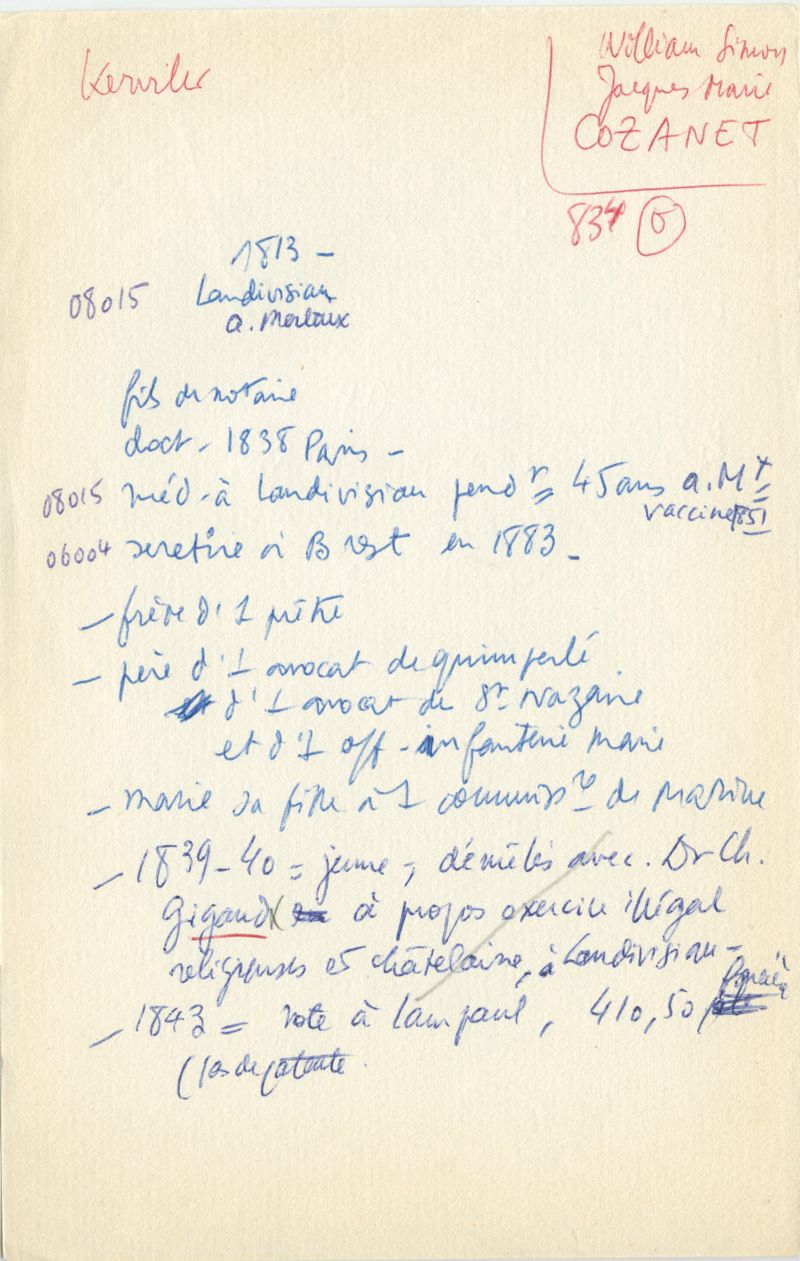 Kerviler
William Simon
Jacques Marie
COZANET
834 6
1813 -
08015 Landivisiau
a. Morlaix
fils de notaire
doct - 1838 Paris -
08015 méd - à Landivisiau pendt 45 ans a. Mx
vaccine 1851
06004 se retire à Brest en 1883 -
- frère d'1 prêtre
- père d'1 avocat de Quimperlé
d'1 avocat de St Nazaire
et d'1 off - infanterie Marie
- marie sa fille à 1 commissre de Marine
- 1839-40 = jeune = démêlés avec Dr Ch.
Gigaud à propos exercice illégal
religieuses et châtelaine, à Landivisiau -
- 1843 = vote à Lampaul, 410,50
(pas de patente.